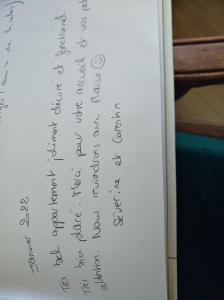 Janvier 2022
Très bel appartement, joliment décoré et fonctionnel.
Très bien placé. Merci pour votre accueil et vos
attention. Nous reviendrons avec plaisir
Séverine et Corentin